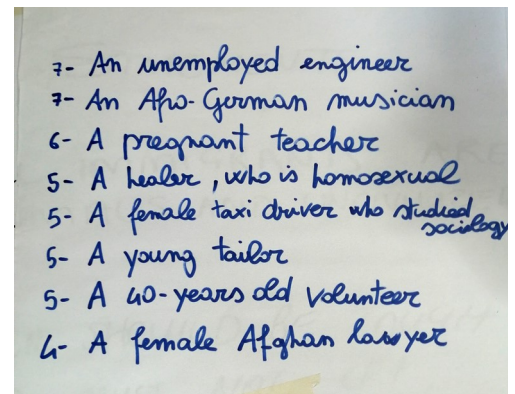 7- An unemployed engineer
7- An Afro-German musician
6- A pregnant teacher
5- A healer, who is homosexual
5- A female taxi driver who studied
sociology
5- A young tailor
5- A 40-years old volunteer
4- A female Afghan lawyer